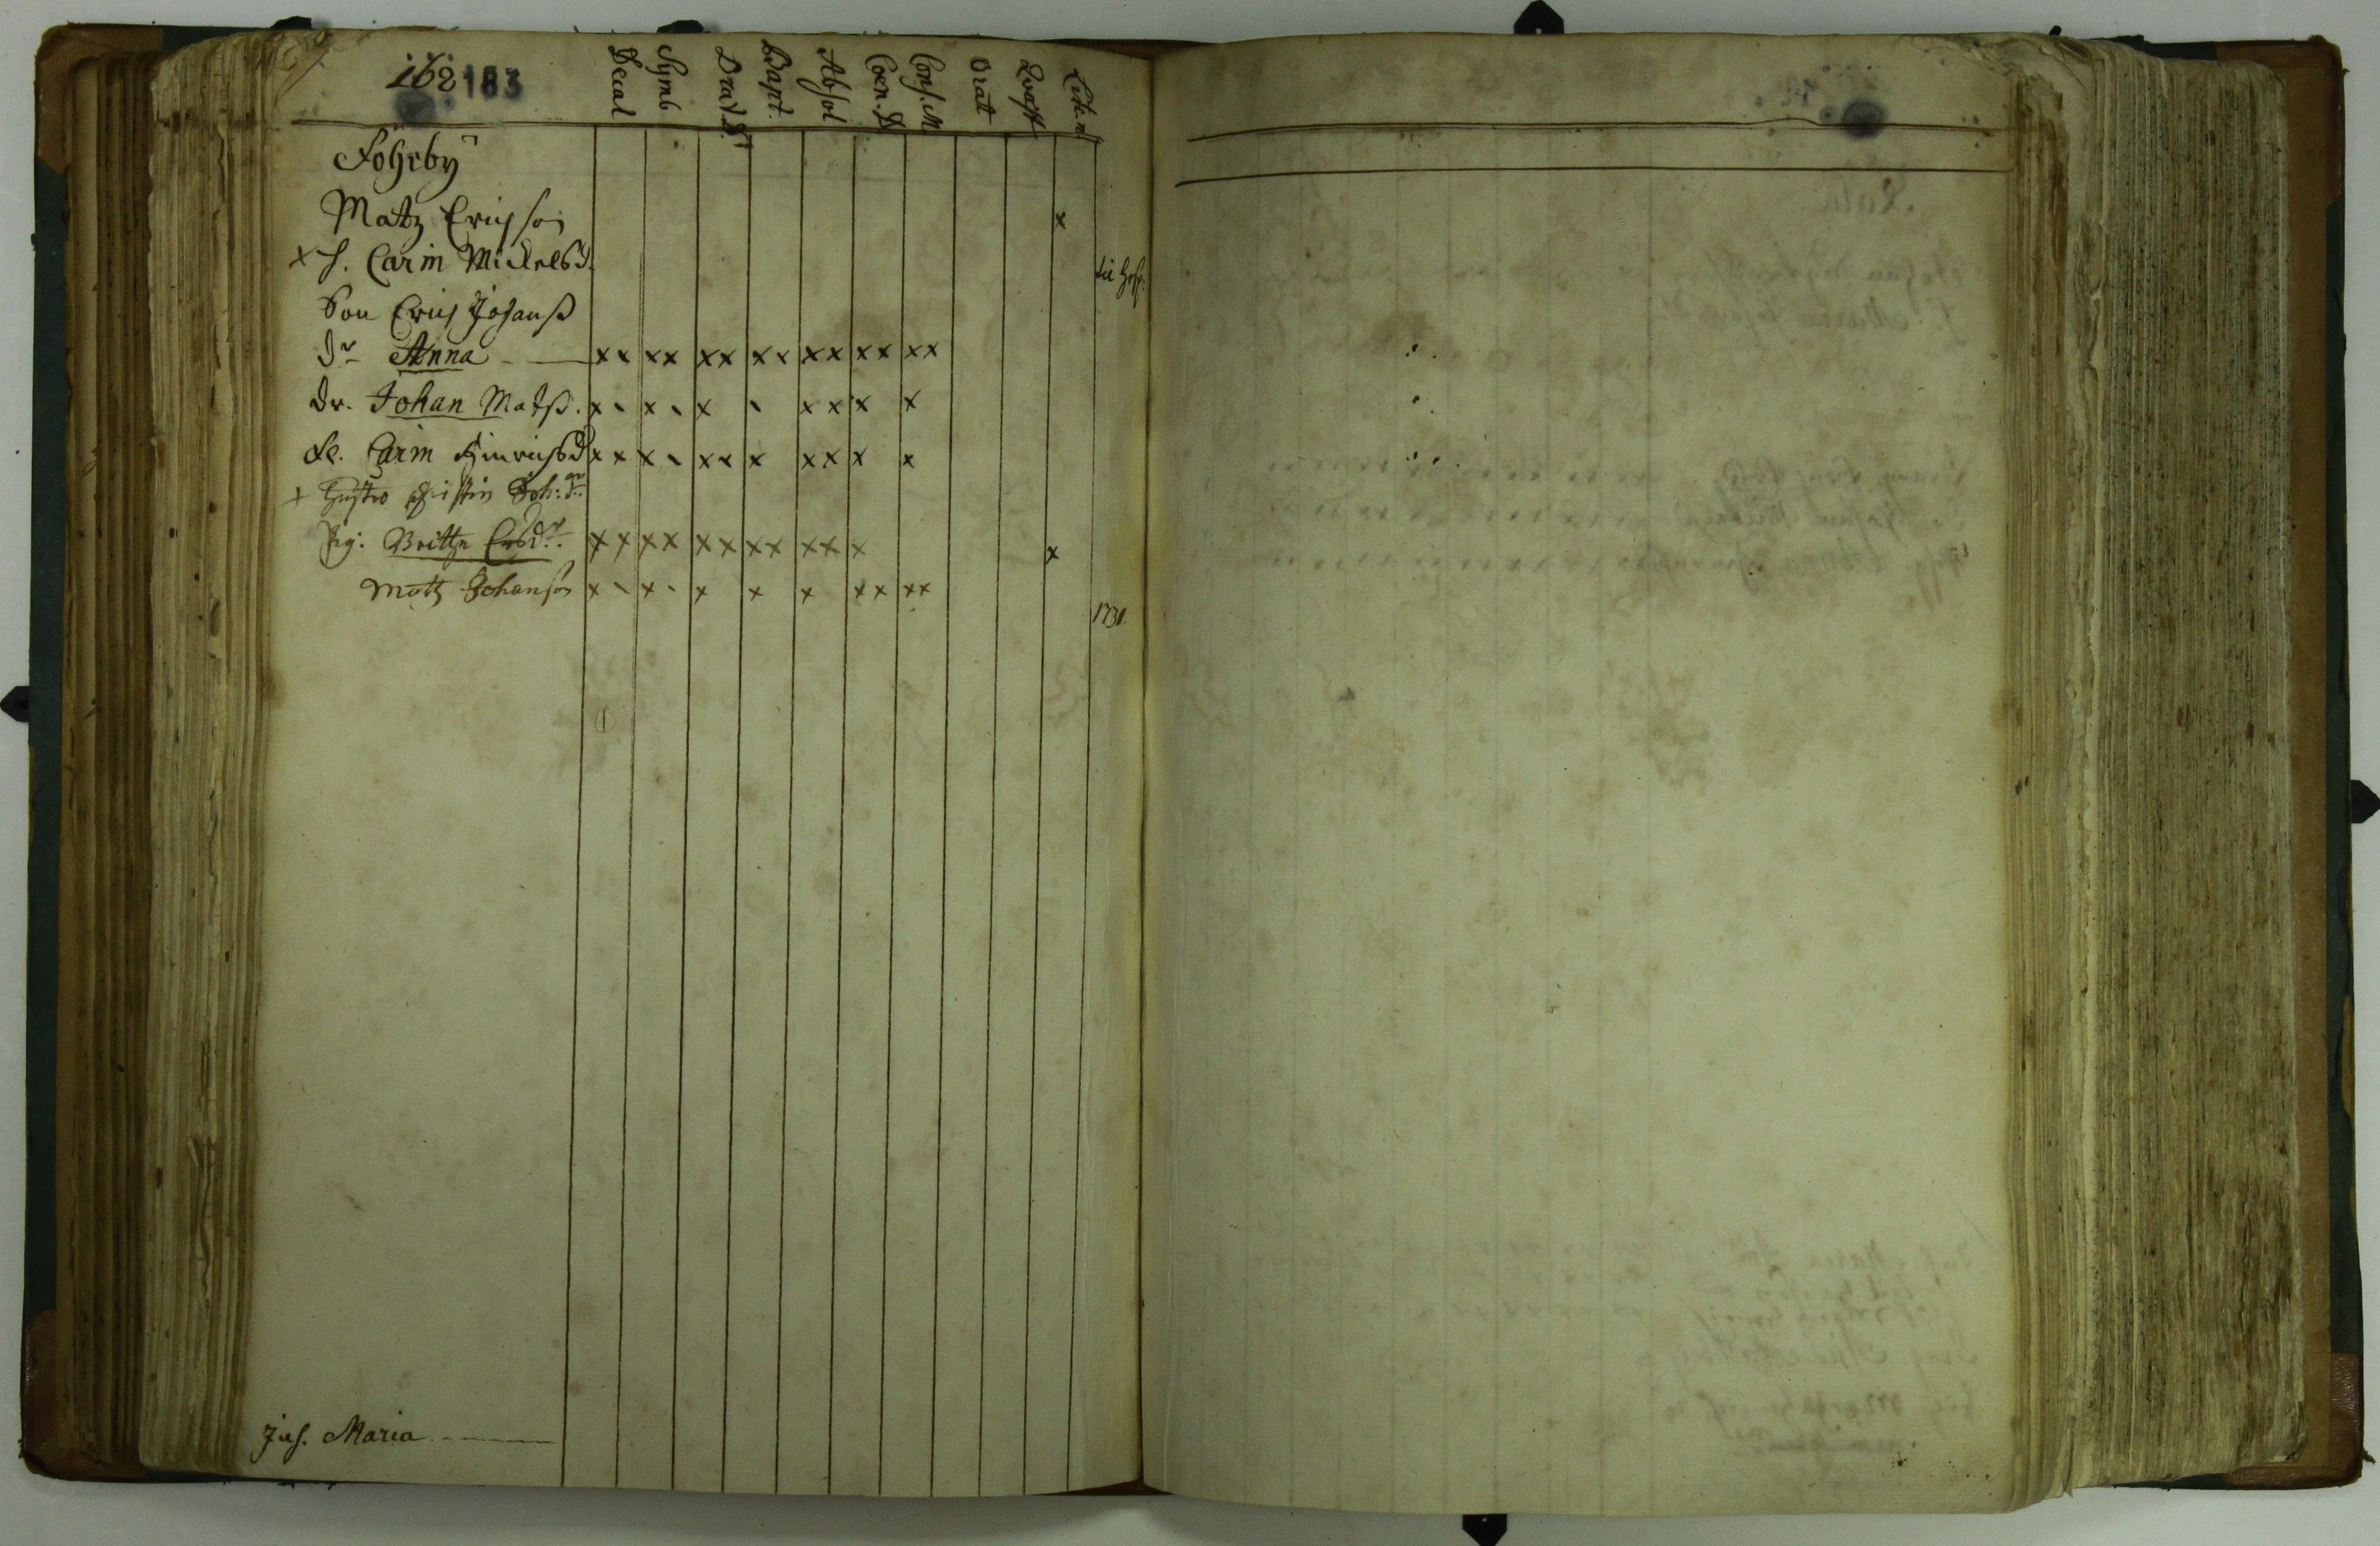 162 183
Decal Symb Orat.D. Bapt. Absol Coen.D Conf.M Oratt Quæst
Föhrby
Matz Ericsson x
x h. Carin Mickelsd. till
Son Eric Johanß
dr Anna — xx xx xx xx xx xx xx
Dr. Johan Matß. x - x - x - xx x x
Carin Hinrichsd x x x - xx x xx x x
x Christin Joh: dr
Pig: Britta Ersdr. xx xx xx xx xx x x
Matz Johanson x - x - x x x xx xx
1731.
Maria